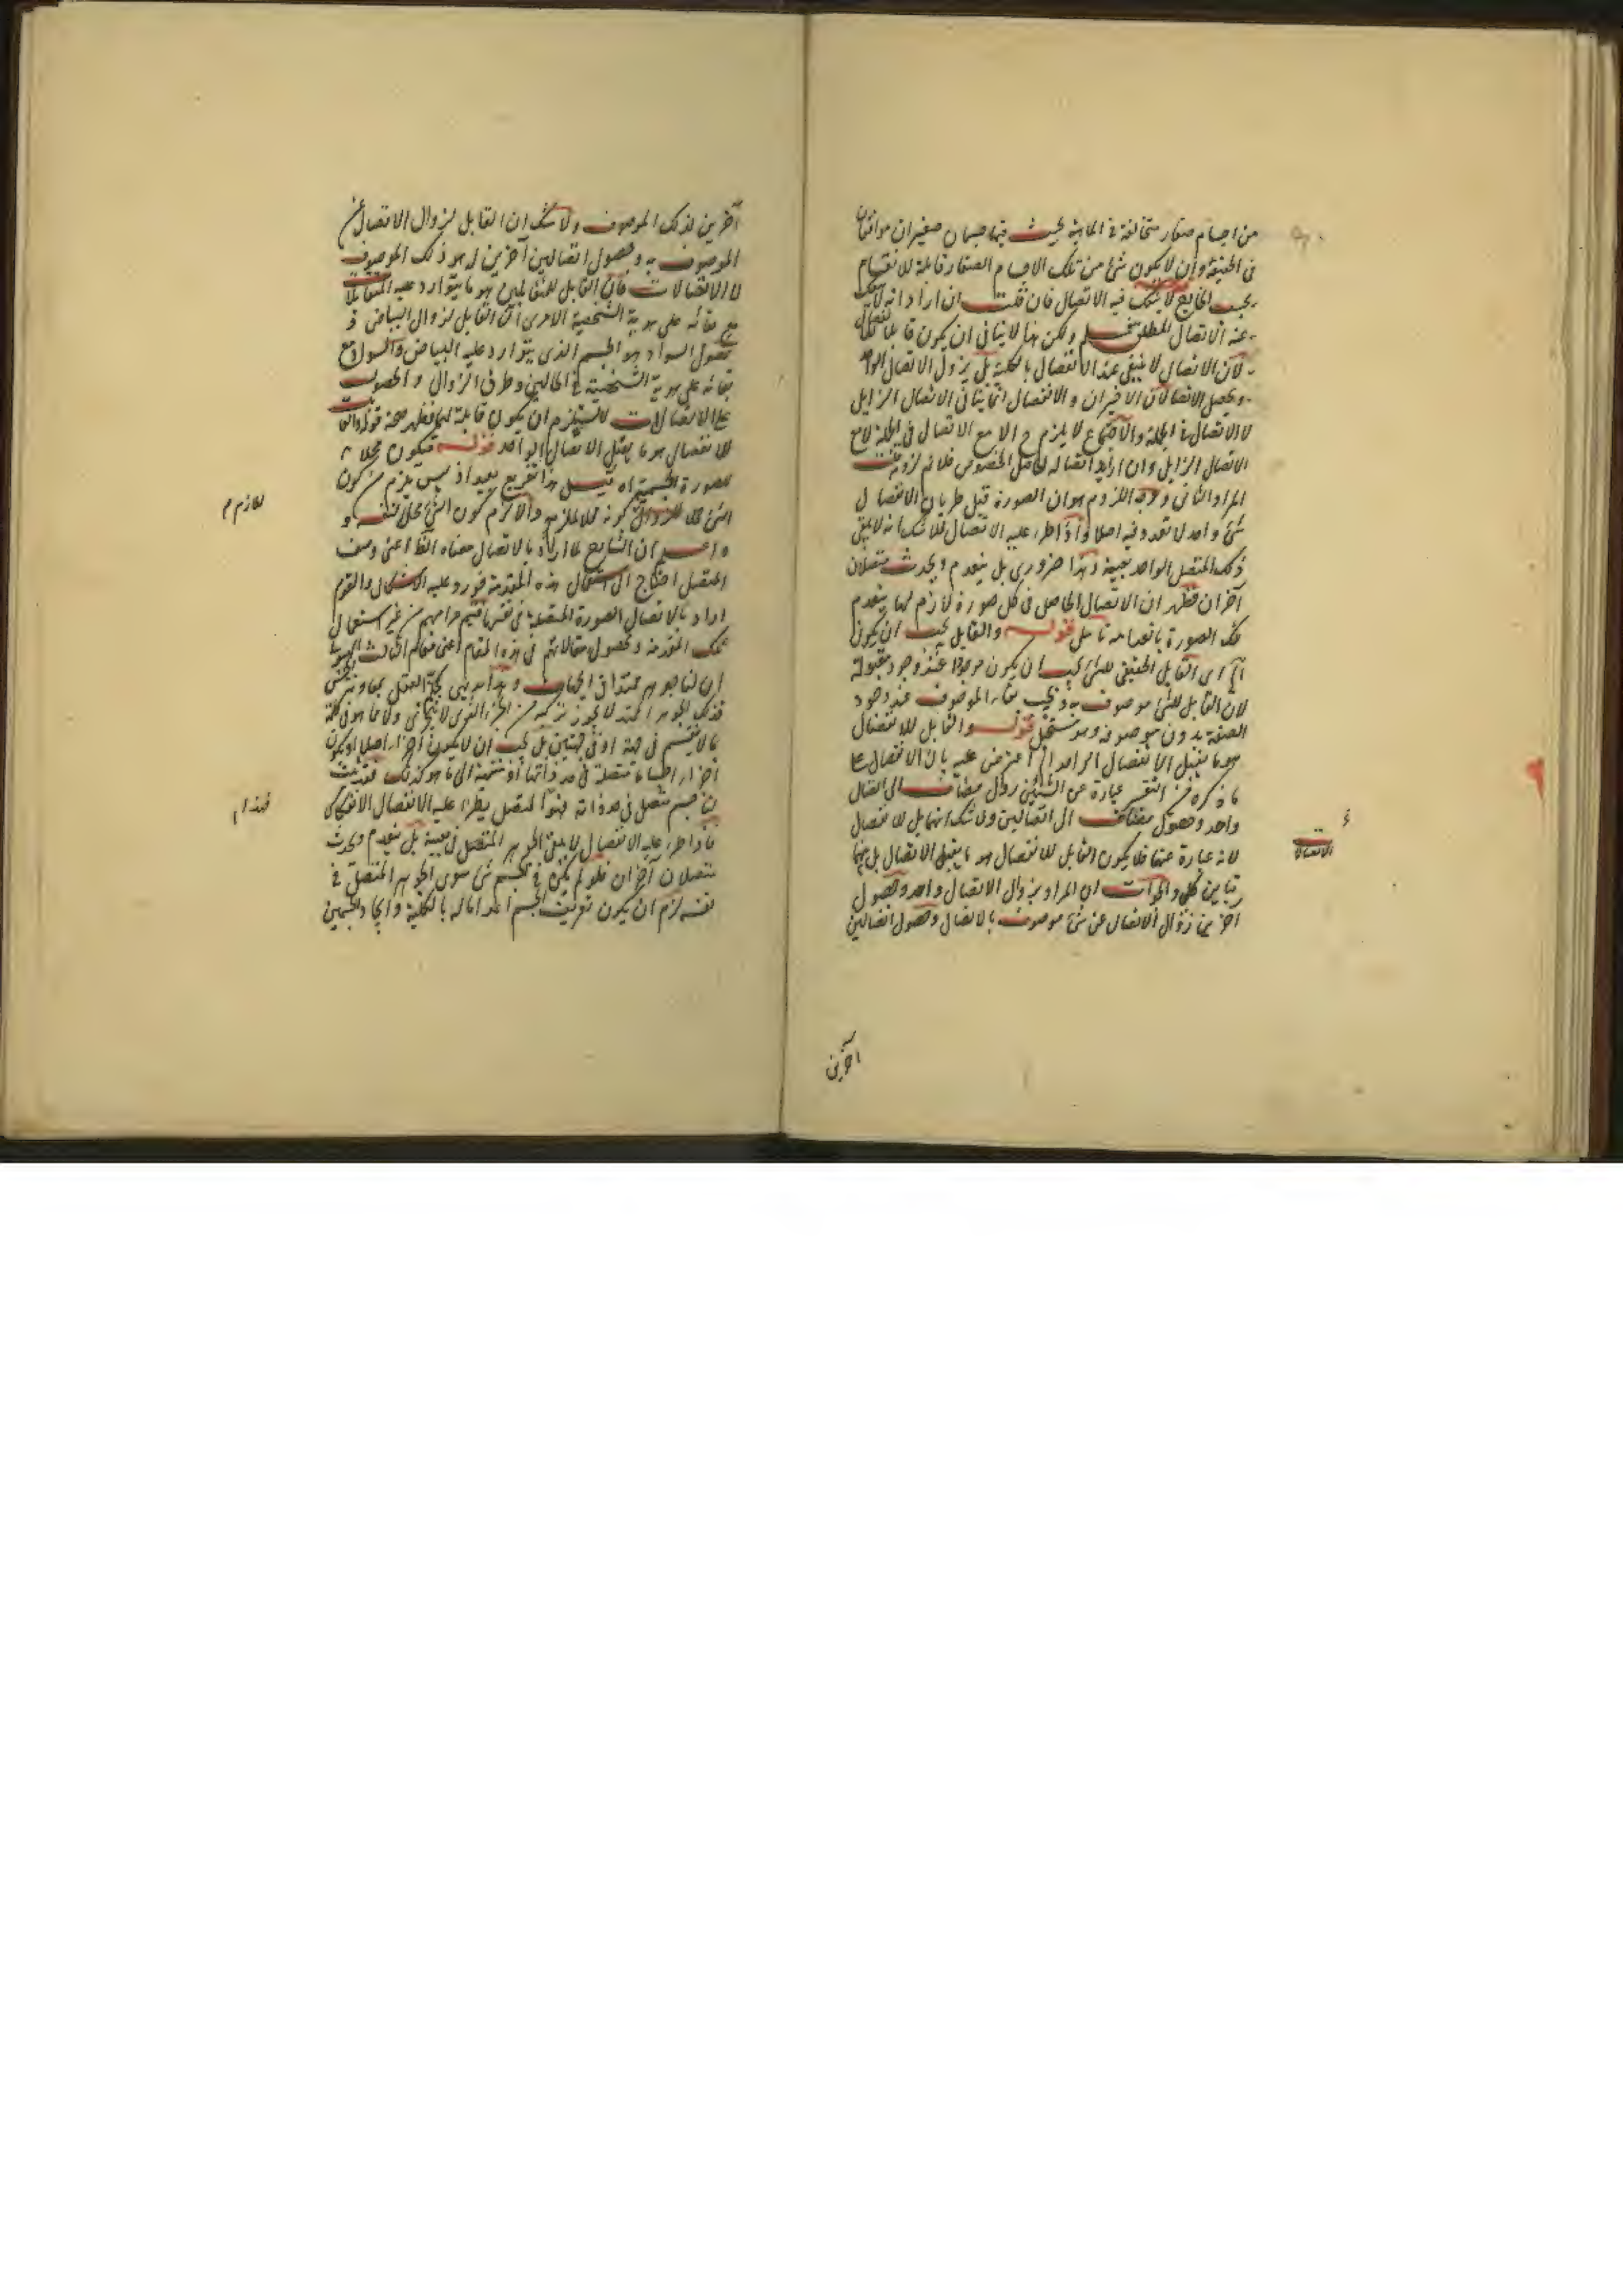 من اجسام صغار متخالفة في الماهية بحيث فيها جسمان صغيران موافقان
في الحقيقة وان لا يكون شئ من تلك الاجسام الصغار قابلة للانقسام
بحسب الخارج لا شك فيه الاتصال فان قلت ان اراد انه لا ينفك
عنه الاتصال المطلق فمسلم ولكن هذا لا ينافى ان يكون قابلا للانفصال
لان الاتصال لا ينتفى عند الانفصال بالكلية بل يزول الاتصال الواحد
ويحصل الاتصالان الاخيران والانفصال انما ينافى الاتصال الزايل
لا الاتصال في الجملة والاجتماع لا يلزم ح الا مع الاتصال في الجملة لا مع
الاتصال الزايل وان اراد اتصاله الحاصل المخصوص فلا نم لزومه قلت
المراد الثانى ووجه اللزوم هو ان الصورة قبل طريان الانفصال
شئ واحد لا تعدد فيه اصلا واذا طرء عليه الانفصال فلا شك انه لا يبقى
ذلك المتصل الواحد بعينه وهذا ضرورى بل ينعدم ويحدث متصلان
آخران فظهر ان الاتصال الحاصل في كل صورة لازم لها ينعدم
تلك الصورة بانعدامه تامل قوله والقابل يجب ان يكون
آه اى القابل الحقيقى للشئ يجب ان يكون موجودا عند وجود مقبوله
لان القابل للشئ موصوف به ويجب بقاء الموصوف عند وجود
الصفة بدون موصوفه وهو مستحيل قوله والقابل للانفصال
هو ما يقبل الانفصال الواحد آه اعترض عليه بان الانفصال على
ما ذكره من التفسير عبارة عن الشيئين زوال مضاف الى اتصال
واحد وحصول مضاف الى اتصالين ولا شك انها بل للانفصال
لانه عبارة عنها فلا يكون القابل للانفصال هو ما يقبل الاتصال بل بينهما
تباين كلى والجواب ان المراد بزوال الاتصال واحد وحصول
آخرين زوال الاتصال عن شئ موصوف بالاتصال وحصول اتصالين
الاتصال
آخرين
آخرين لذلك الموصوف ولا شك ان القابل لزوال الاتصال عن
الموصوف به وحصول اتصالين آخرين له هو ذلك الموصوف
لا الاتصالات فان القابل للمتقابلين هو ما يتوارد عليه المتقابلان
مع بقائه على هوية الشخصية الا يرى ان القابل لزوال البياض و
حصول السواد هو الجسم الذى يتوارد عليه البياض والسواد مع
بقائه على هوية الشخصية في الحالين وطرفى الزوال والحصول
على الاتصالات لا يستلزم ان يكون قابلة لهما فظهر صحة قوله والقابل
للانفصال هو ما يقبل الاتصال الواحد قوله فيكون محلا
للصورة الجسمية اه قيل هذا تفريع بعيد اذ ليس يلزم من كون
الشئ محلا للزوال كونه محلا للازم والا لزم كون الشئ محلا لنفسه و
واعلم ان الشارح لما اراد بالاتصال معناه الظ اعنى وصف
المتصل احتاج الى استعمال هذه المقدمة فورد عليه الاشكال والقوم
ارادوا بالاتصال الصورة المتصلة في نفسها فتيم مرامهم من غير استعمال
تلك المقدمة ومحصول مقالاتهم في هذه المقام اعنى مقام اثبات الهيولى
ان لنا جوهر ممتدا في الجهات وهذا بديهى يحكم العقل بمعاونة الحس
فذلك الجوهر الممتد لا يجوز تركبه من الجزء الذى لا يتجزى ولا مما هو في حكمه
مما لا ينقسم في جهة او في جهتين بل يجب ان لا يكون اجزاء اصلا او يكون
اجزاء اجساما متصلة في حد ذاتها او منتهية الى ما هو كذلك فقد ثبت
ان جسم متصل في حد ذاته فهذا المتصل يطرء عليه الانفصال الانفكاكى
فاذا طرء عليه الانفصال لا يبقى الجوهر المتصل في بعينه بل ينعدم ويحدث
متصلان آخران فلو لم يكن في الجسم شئ سوى الجوهر المتصل في
نفسه لزم ان يكون تفريق الجسم اعداما له بالكلية وايجادا لجسمين
للازم م
فهذا م